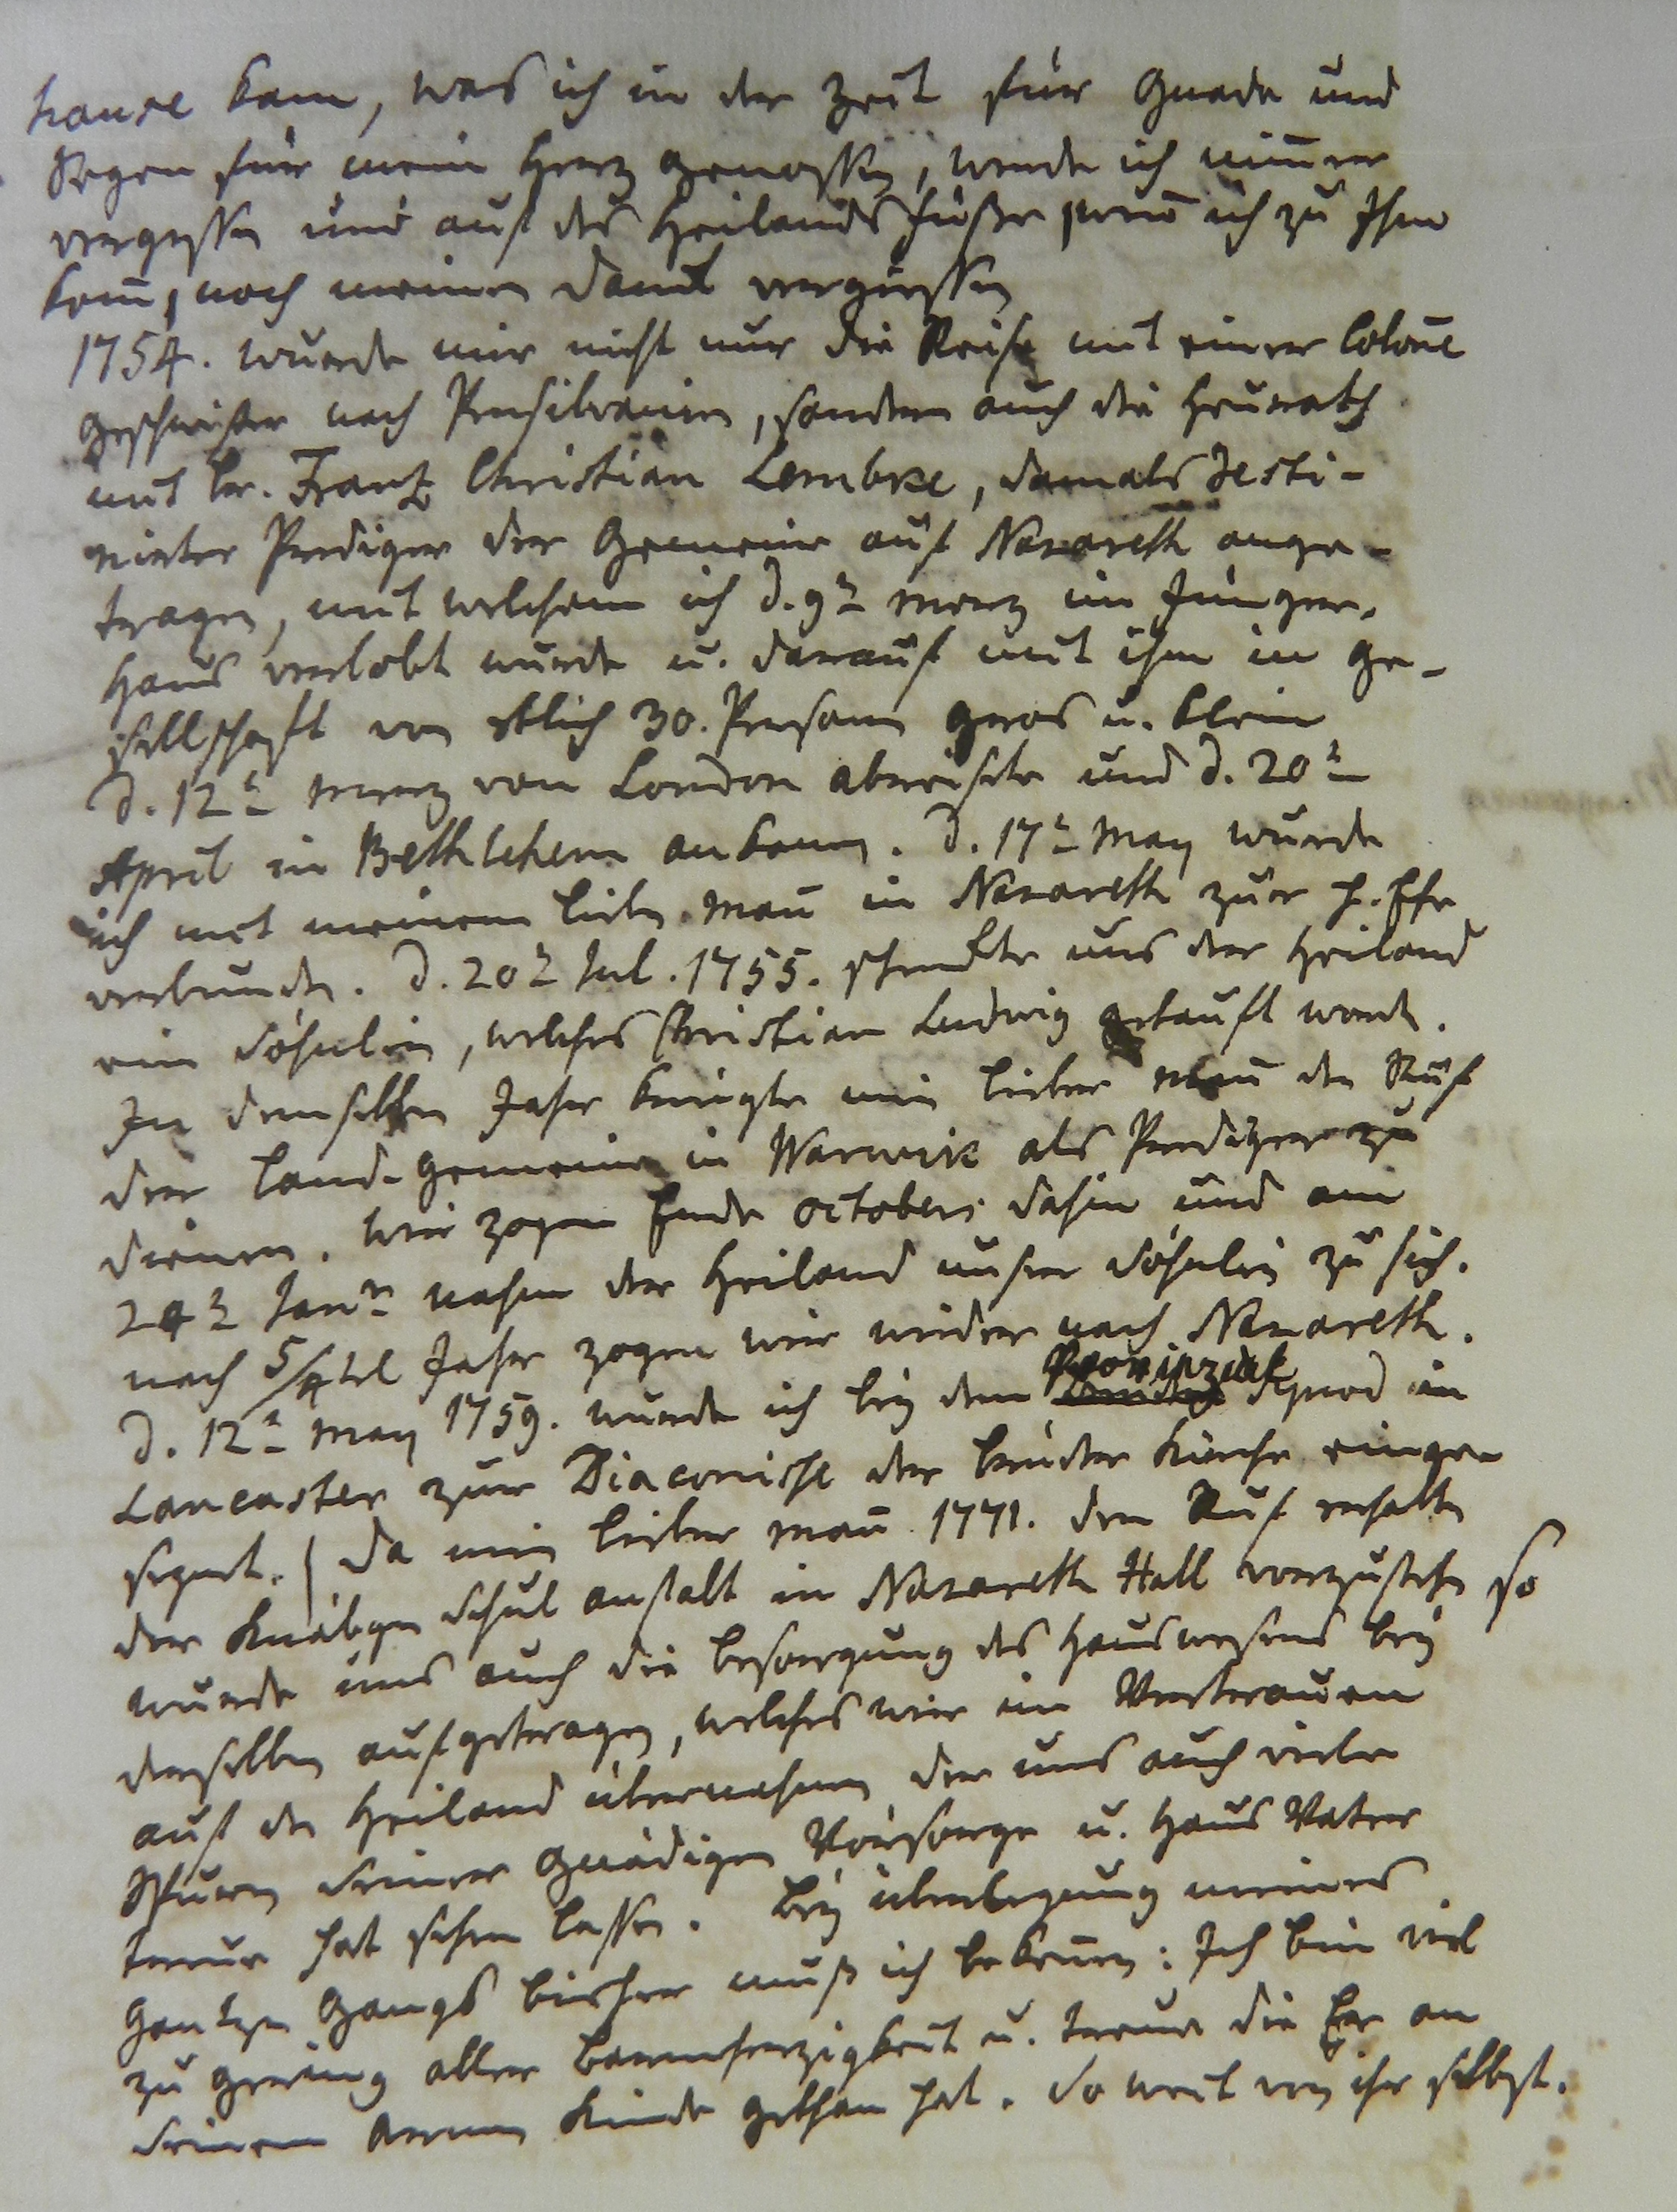 hause kam, was ich in der Zeit für Gnade und
Segen für mein Herz genoßen, werde ich nimer
vergeßen und auf des Heilands Füße, wen̄ ich zu Ihm
kom̄, noch meinen Dank vergießen
1754. wurde mir nicht nur die Reise mit einer Colon̄e
Geschwister nach Pensilvanien, sondern auch die Heurath
mit br. Frantz Christian Lembke, damals desti-
nirter Prediger der Gemeine auf Nazareth ange-
tragen, mit welchem ich d. 9t Mertz im Jünger-
Haus verlobt wurde u. darauf mit ihm in Ge-
sellschaft von etlich 30. Personen gros u. klein
d. 12t Mertz von London abreisete und d. 20t
April in Bethlehem ankamen. d. 17t May wurde
ich mit meinem lieben Man̄ in Nazareth zur h. Ehe
verbunden. d. 20t Jul. 1755. schenkte uns der Heiland
ein Söhnlein, welches Christian Ludwig getauft worde.
In demselben Jahr kriegte mein lieber Man̄ den Ruf
der Land-Gemeine in Warwik als Prediger zu
dienen. Wir zogen Ende Octobers dahin und am
24t Janr nahm der Heiland unser Söhnlein zu sich.
nach 5/4tel Jahr zogen wir wieder nach Nazareth.
d. 12t May 1759. wurde ich bey dem Provinzial Synod in
Lancaster zur Diaconisse der Brüder Kirche einge-
segnet. / Da mein lieber Man̄ 1771. den Ruf erhalten
der Knäbgen Schul anstalt in Nazareth Hall vorzustehen so
wurde uns auch die Besorgung des Hauswesens bey
derselben aufgetragen, welches wir im Vertrauen
auf den Heiland übernahmen, der uns auch viele
Spuren seiner Gnädigen Vorsorge u. Haus Vater
treue hat sehen lassen. Bey überlegung meines
Gantzen Gangs bisher muß ich bekennen: Ich bin viel
zu gering aller Barmherzigkeit u. treue die Er an
seinem armen Kinde gethan hat. So weit von ihr selbst.